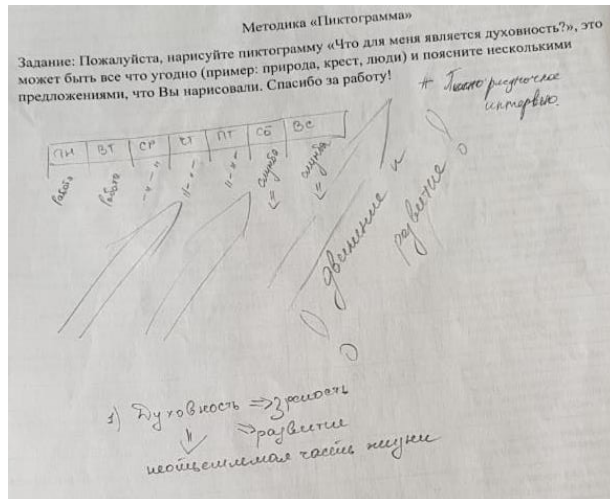 Методика «Пиктограмма»
Задание: Пожалуйста, нарисуйте пиктограмму «Что для меня является духовность?», это
может быть все что угодно (пример: природа, крест, люди) и поясните несколькими
предложениями, что Вы нарисовали. Спасибо за работу!
интервью.
ПН ВТ СР ЧТ ПТ СБ ВС
Работа Работа -"- "-"- "-"- <= служба <= служба
! движение и
развитие !
1) Духовность => зрелость
=> развитие
неотъемлемая часть жизни